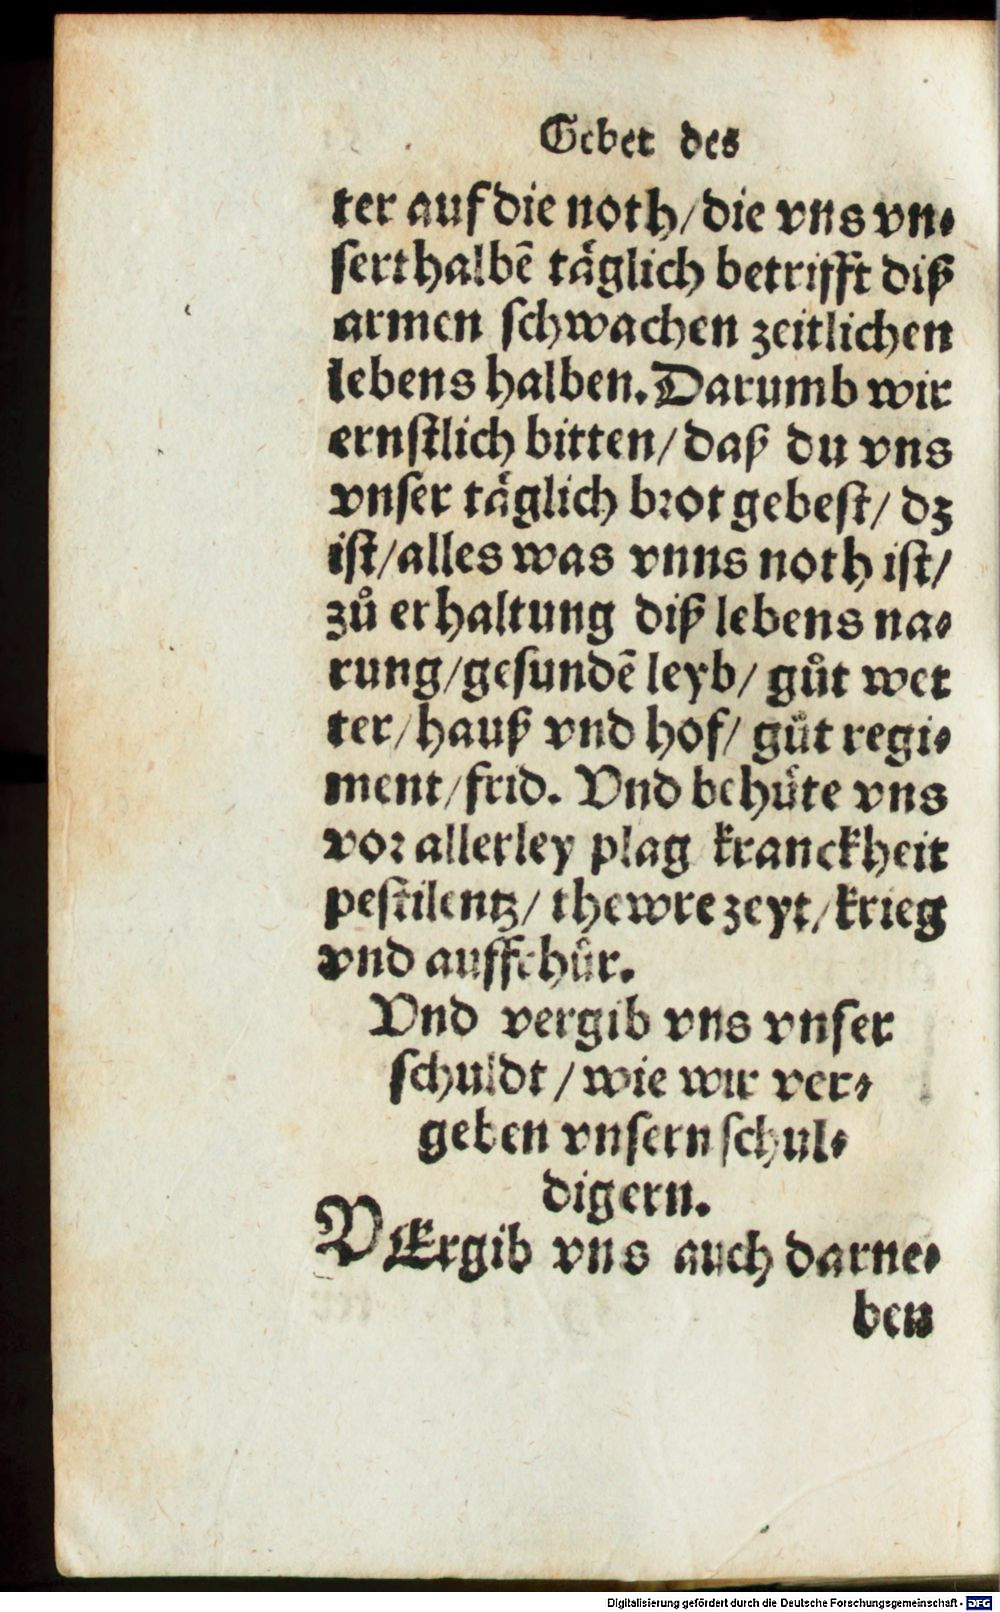 Gebet des
ter auf die noth/ die vns vn⸗
ſerthalbẽ taͤglich betrifft diß
armen ſchwachen zeitlichen
lebens halben. Darumb wir
ernſtlich bitten/ daß du vns
vnſer taͤglich brot gebeſt/ dz
iſt/ alles was vnns noth iſt/
zuͦ erhaltung diß lebens na⸗
rung/ geſundẽ leyb/ guͦt wet
ter/ hauß vnd hof/ guͦt regi⸗
ment/ frid. Vnd behuͤte vns
vor allerley plag kranckheit
peſtilentz/ thewre zeyt/ krieg
vnd auffrhuͦr.
Vnd vergib vns vnſer
ſchuldt / wie wir ver⸗
geben vnſern ſchul⸗
digern.
VErgib vns auch darne⸗
ben
Digitalisierung gefördert durch die Deutsche Forschungsgemeinschaft - DFG